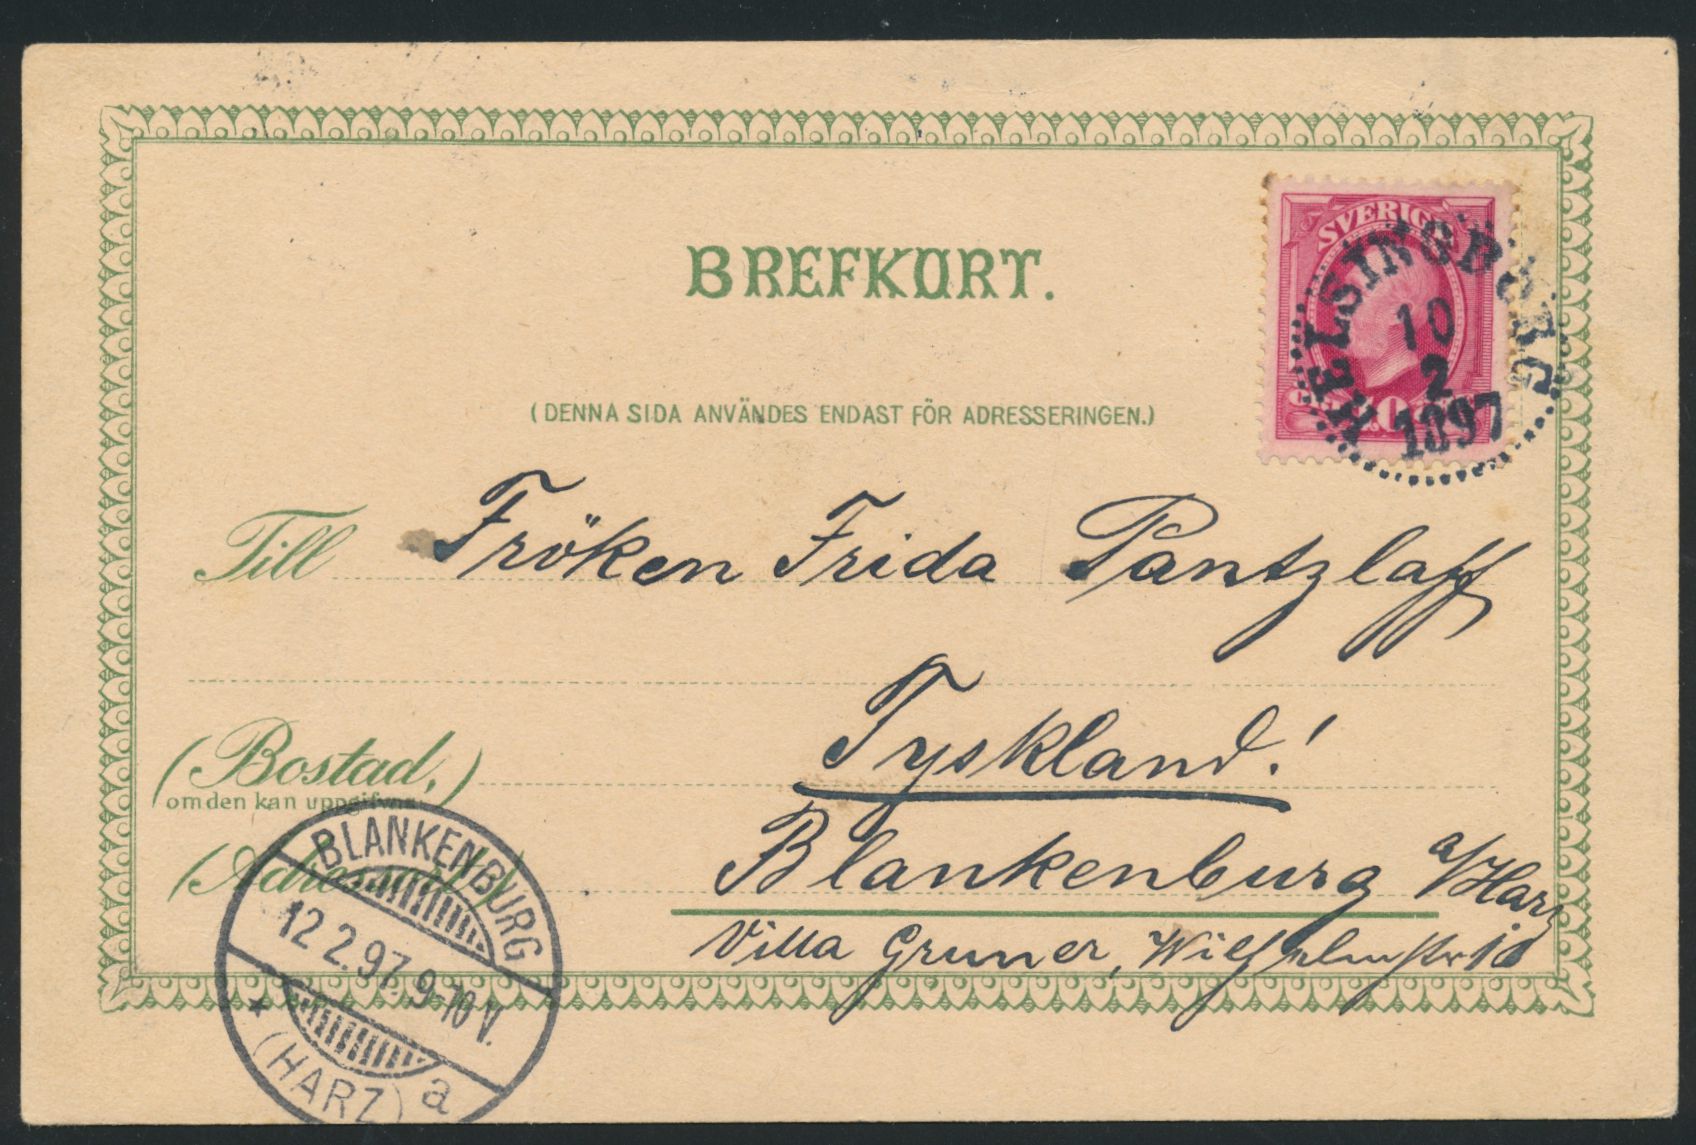 BREFKORT.
SVERIGE
HELSINGBORG
10
2
1897
(DENNA SIDA ANVÄNDES ENDAST FÖR ADRESSERINGEN.)
Till Fröken Frida Pantzlaff
Tyskland!
(Bostad,)
om den kan uppgifvas
(Adress)
Blankenburg a/Harz
Villa Gruner, Wilhelmstr 18
BLANKENBURG
12.2.97. 9-10 V.
* (HARZ) a